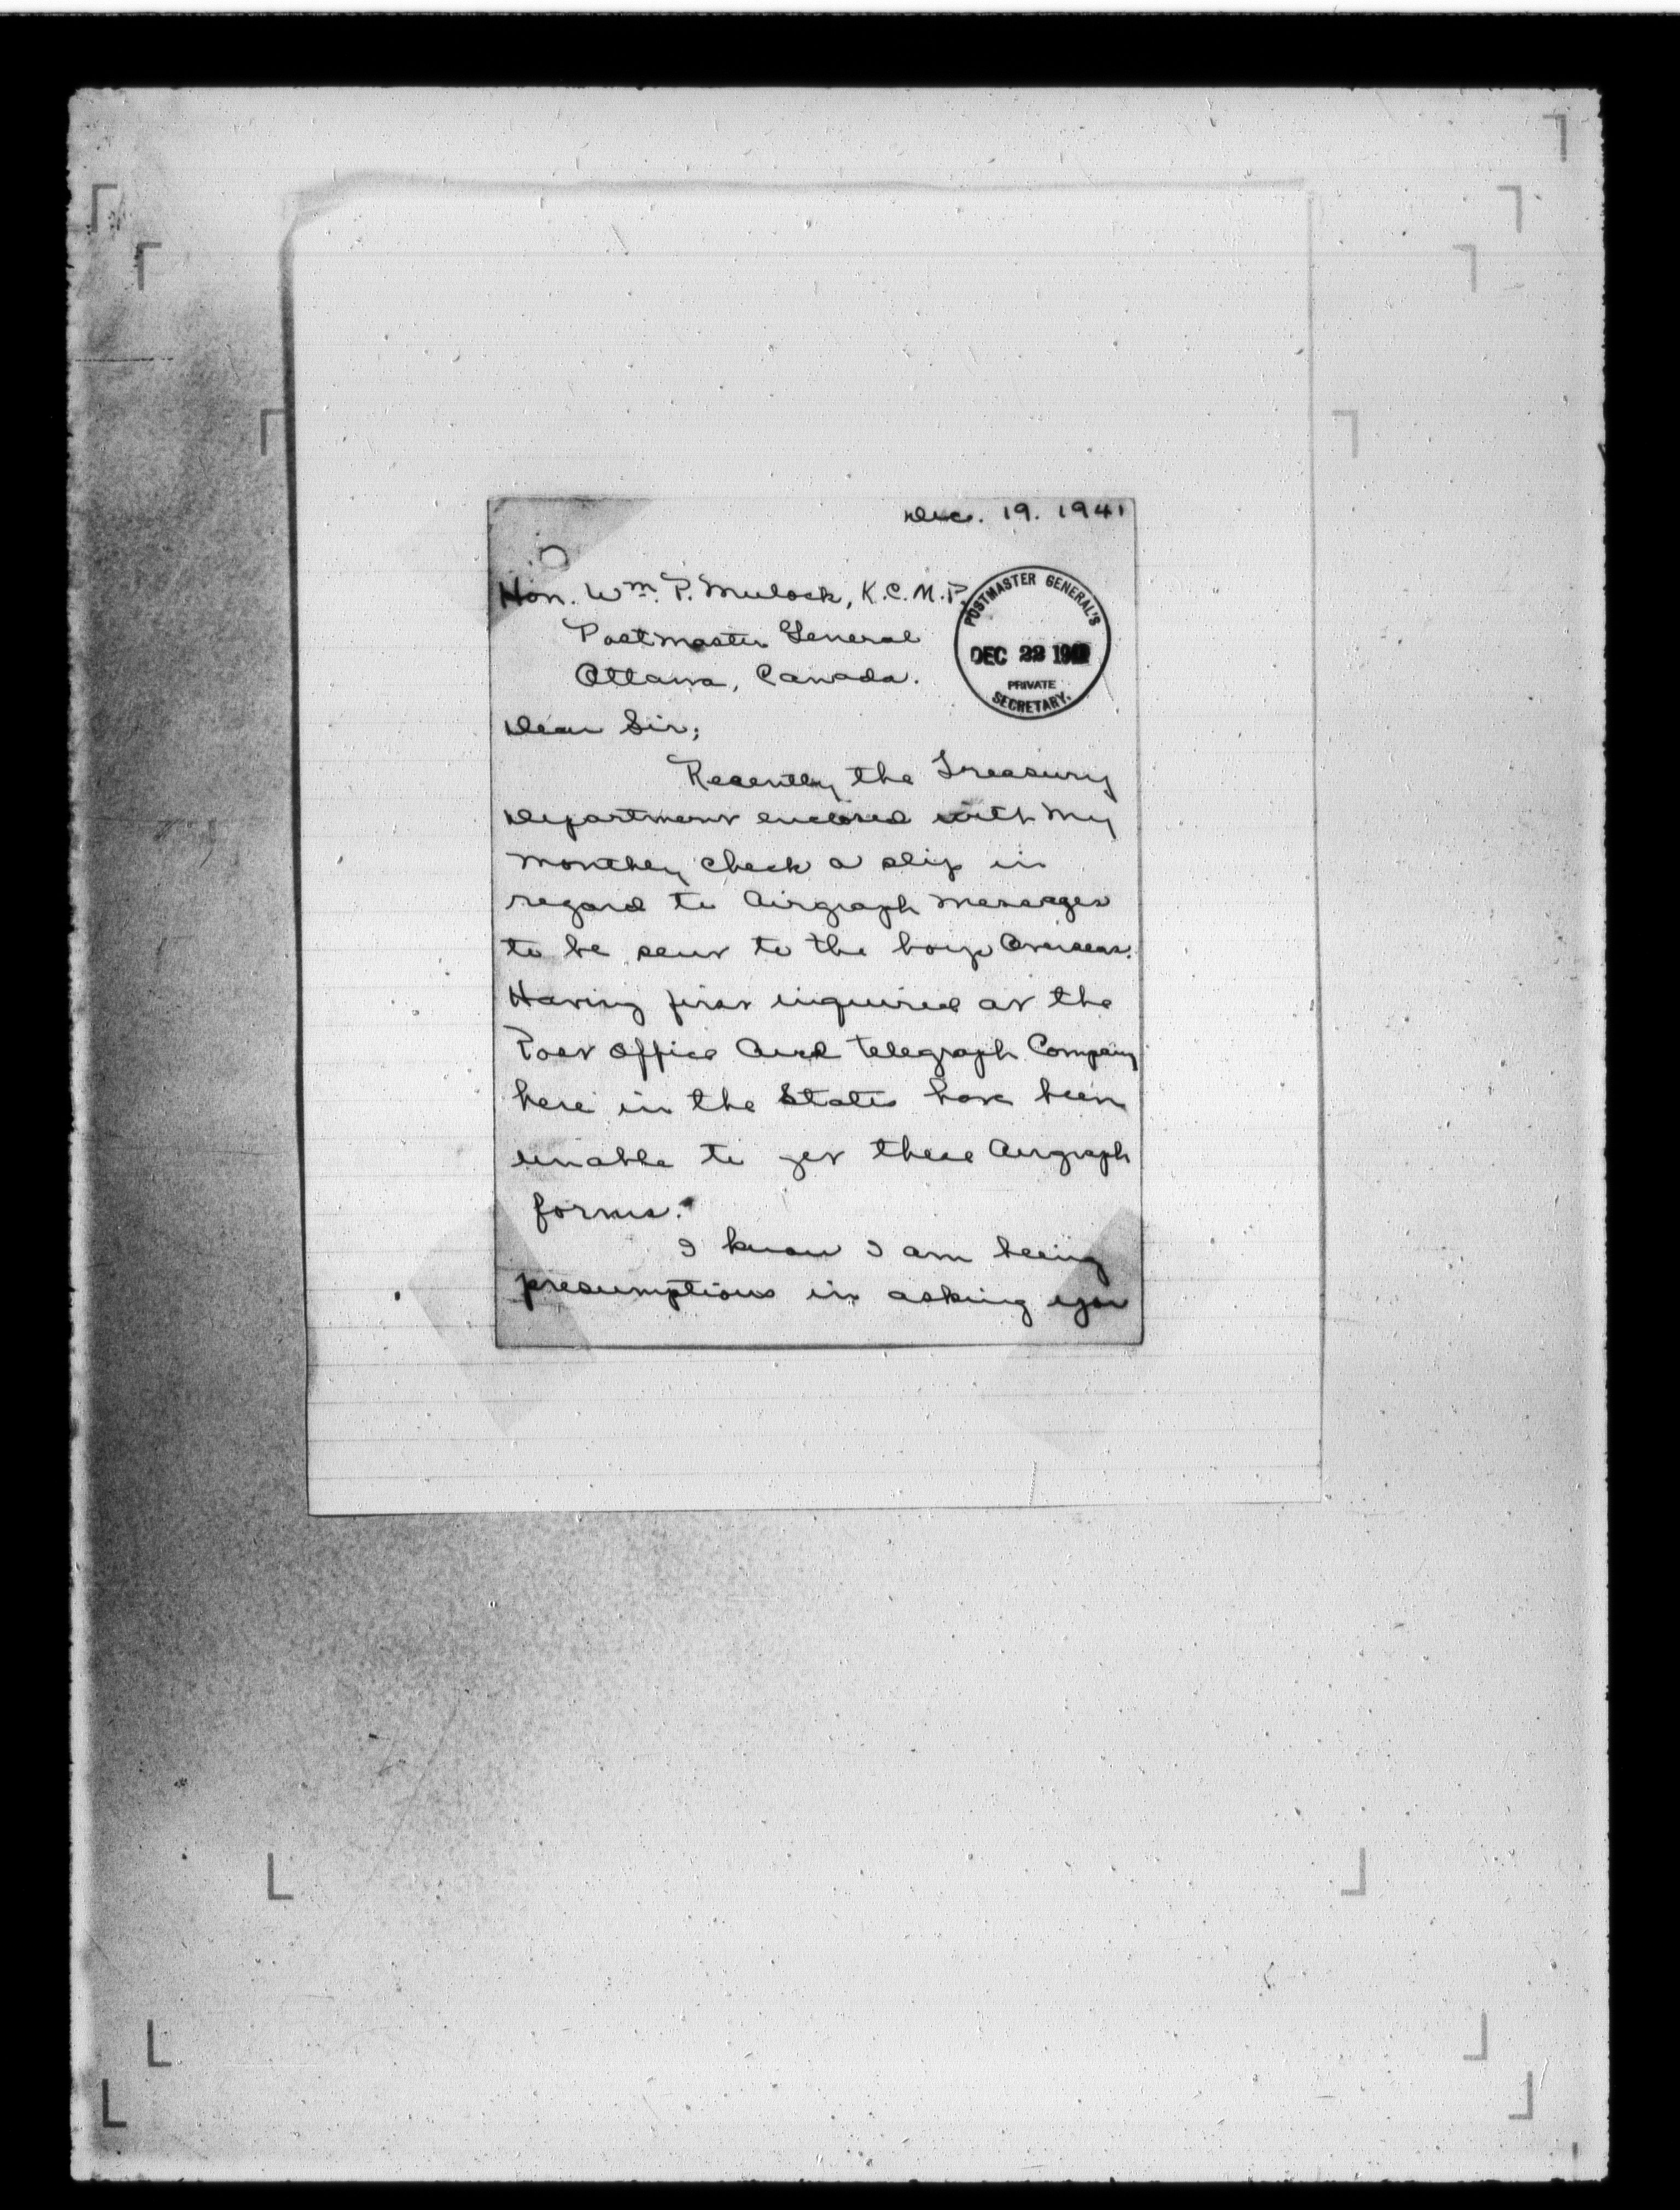 Dec. 19. 1941
Hon. Wm. P. Mulock, K.C.M.P.
Postmaster General
Ottawa, Canada.
POSTMASTER GENERAL'S
DEC 22
PRIVATE
SECRETARY.
Dear Sir;
Recently the Treasury
Department enclosed with my
monthly check a slip in
regard to Airgraph messages
to be sent to the boys Overseas.
Having first inquired at the
Post Office And telegraph Company
here in the States have been
unable to get these Airgraph
forms.
I know I am being
presumptious in asking you